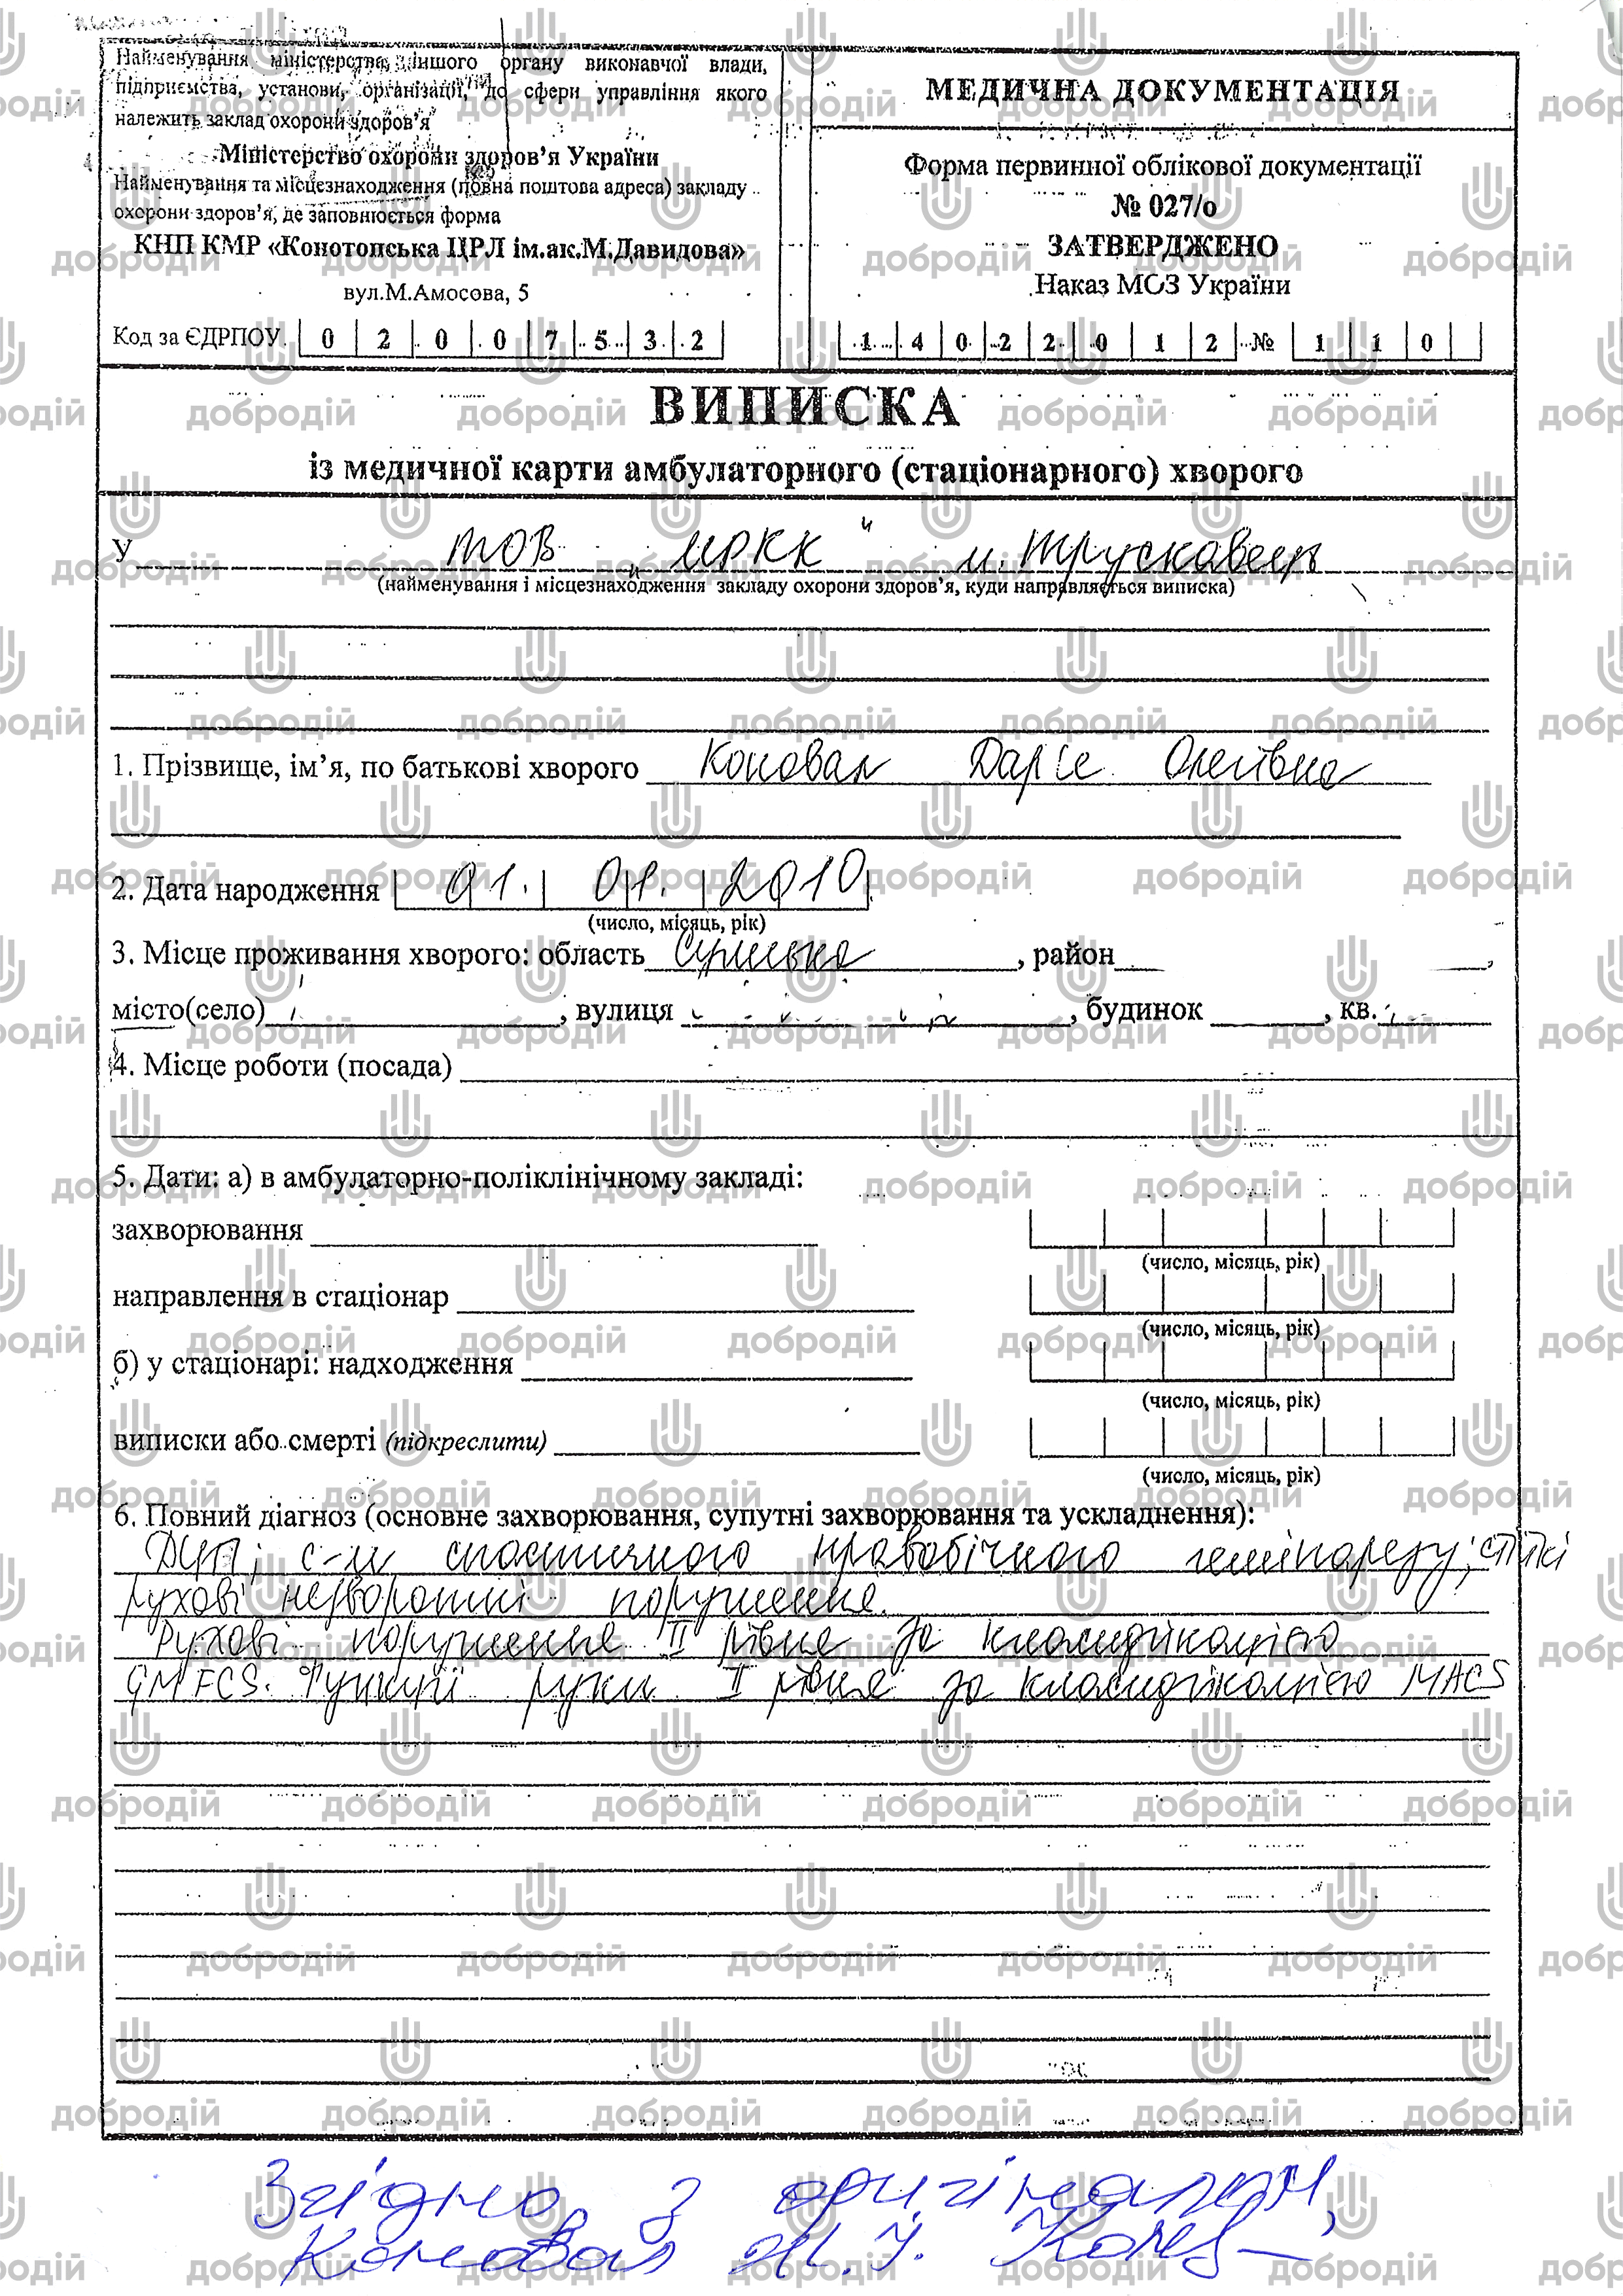 Найменування міністерства, іншого органу виконавчої влади,
підприємства, установи, організації, до сфери управління якого
належить заклад охорони здоров'я
Міністерство охорони здоров'я України
Найменування та місцезнаходження (повна поштова адреса) закладу
охорони здоров'я, де заповнюється форма
КНП КМР «Конотопська ЦРЛ ім.ак.М.Давидова»
вул.М.Амосова, 5
Код за ЄДРПОУ 0 2 0 0 7 5 3 2
МЕДИЧНА ДОКУМЕНТАЦІЯ
Форма первинної облікової документації
№ 027/о
ЗАТВЕРДЖЕНО
Наказ МОЗ України
1 4 0 2 2 0 1 2 № 1 1 0
ВИПИСКА
із медичної карти амбулаторного (стаціонарного) хворого
У ТОВ „МРКК" м. Трускавець
(найменування і місцезнаходження закладу охорони здоров'я, куди направляється виписка)
1. Прізвище, ім'я, по батькові хворого Коновал Дар'я Олегівна
2. Дата народження 01. 01. 2010
(число, місяць, рік)
3. Місце проживання хворого: область Сумська, район
місто(село), вулиця, будинок, кв.
4. Місце роботи (посада)
5. Дати: а) в амбулаторно-поліклінічному закладі:
захворювання
(число, місяць, рік)
направлення в стаціонар
(число, місяць, рік)
б) у стаціонарі: надходження
(число, місяць, рік)
виписки або смерті (підкреслити)
(число, місяць, рік)
6. Повний діагноз (основне захворювання, супутні захворювання та ускладнення):
ДЦП, с-м спастичного правобічного геміпарезу; стійкі
рухові незворотні порушення.
Рухові порушення II рівня за класифікацією
GMFCS. Функції руки II рівня за класифікацією MACS
Згідно з оригіналом,
Коновал
добродій